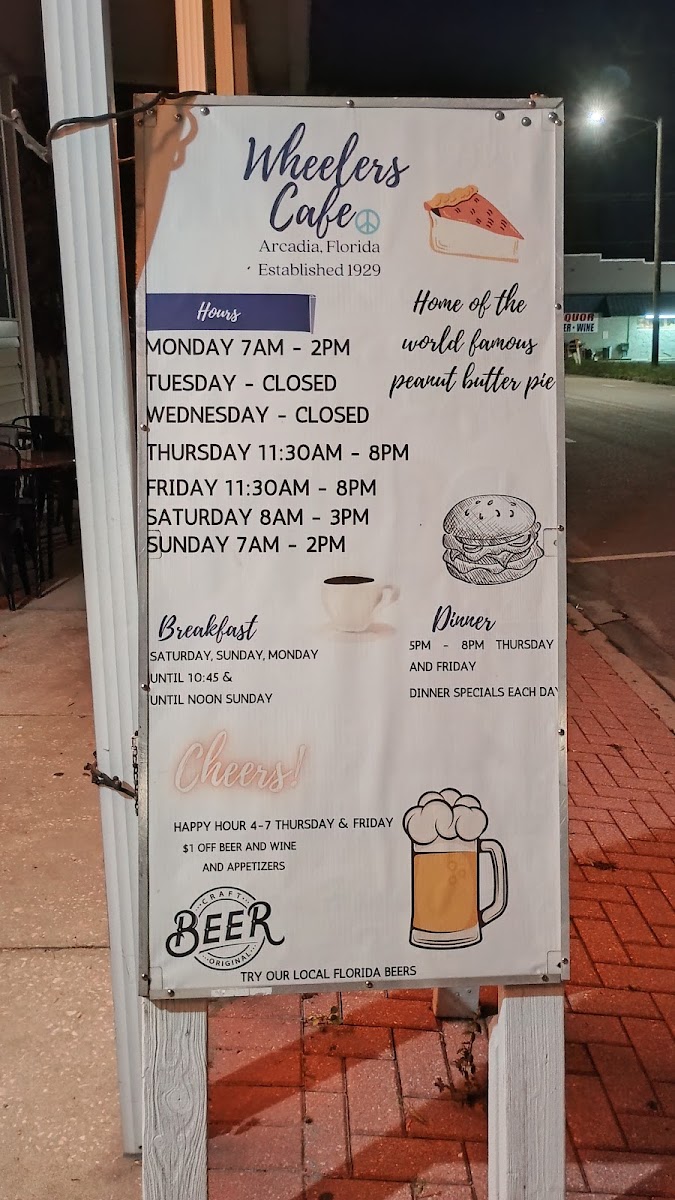 Wheelers
Cafe
Arcadia, Florida
Established 1929
Home of the
world famous
peanut butter pie
Hours
MONDAY 7AM - 2PM
TUESDAY - CLOSED
WEDNESDAY - CLOSED
THURSDAY 11:30AM - 8PM
FRIDAY 11:30AM - 8PM
SATURDAY 8AM - 3PM
SUNDAY 7AM - 2PM
Breakfast
SATURDAY, SUNDAY, MONDAY
UNTIL 10:45 &
UNTIL NOON SUNDAY
Dinner
5PM - 8PM THURSDAY
AND FRIDAY
DINNER SPECIALS EACH DAY
Cheers!
HAPPY HOUR 4-7 THURSDAY & FRIDAY
$1 OFF BEER AND WINE
AND APPETIZERS
CRAFT
BEER
ORIGINAL
TRY OUR LOCAL FLORIDA BEERS
QUOR
ER • WINE